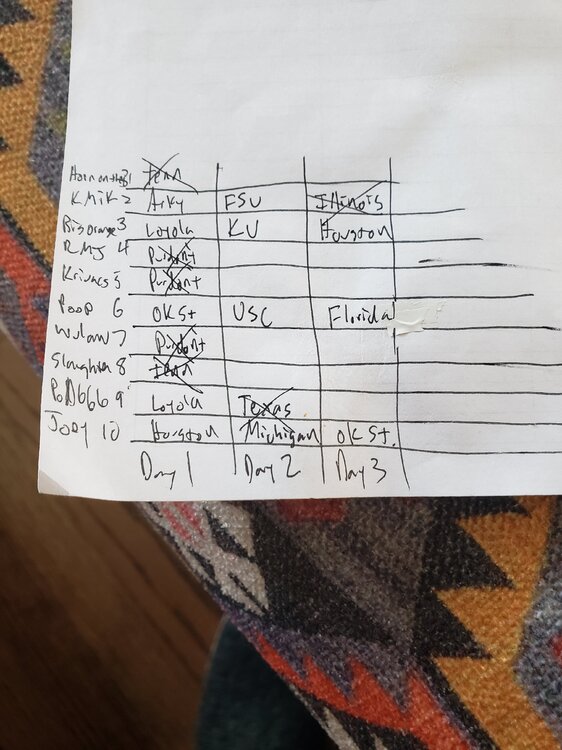 1 Tenn
KMik 2 Arky FSU Illinois
Bisorange 3 Loyola KU Houston
RMJ 4 Purdont
Krivacs 5 Purdont
Poop 6 OKSt USC Florida
7 Purdont
Slaughta 8 Tenn
9 Loyola Texas
Joey 10 Houston Michigan OKSt.
Day 1 Day 2 Day 3